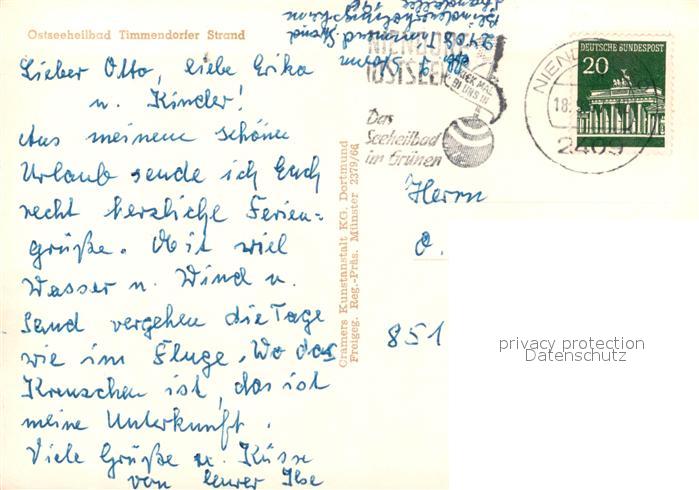 Ostseeheilbad Timmendorfer Strand
Lieber Otto, liebe Erika
u. Kinder!
Aus meinem schönen
Urlaub sende ich Euch
recht herzliche Ferien=
grüße. Mit viel
Wasser u. Wind u.
Sand vergehen die Tage
wie im Fluge. Wo das
Kreuzchen ist, das ist
meine Unterkunft.
Viele Grüße u. Küsse
von Eurer Ilse
Cramers Kunstanstalt KG. Dortmund
Freigeg. Reg.-Präs. Münster 2379/66
2408 Timmendf. Strand
NIENDORF
OSTSEE
Das
Seeheilbad
im Grünen
DEUTSCHE BUNDESPOST
20
NIEN
18.
2409
Herrn
O.
851
privacy protection
Datenschutz